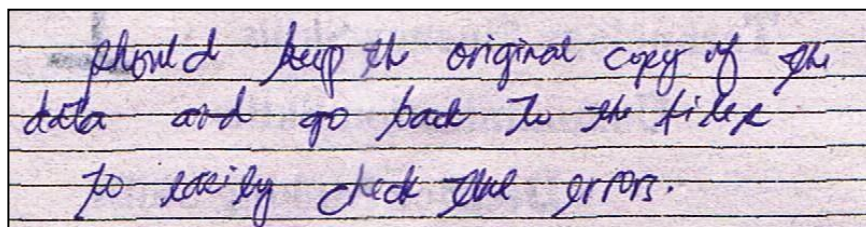 should keep the original copy of the
data and go back to the files
to easily check the errors.